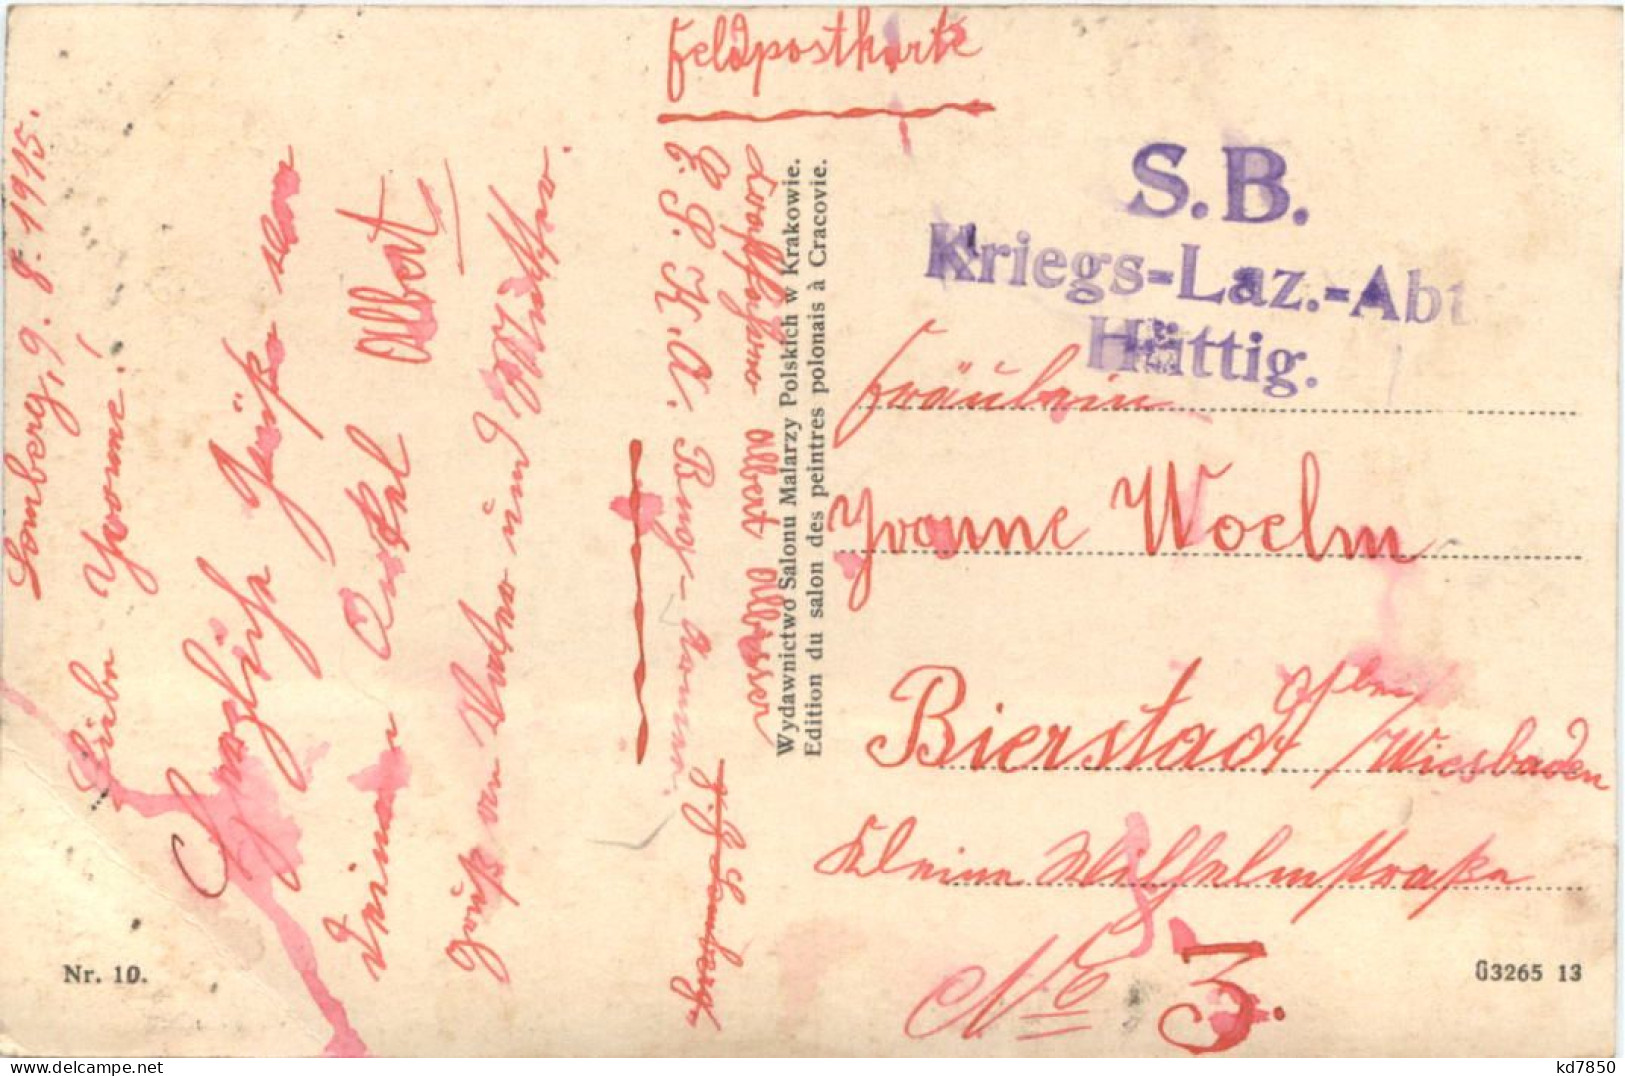 Feldpostkarte
S.B.
Kriegs-Laz.-Abt
Hüttig.
Fräulein
Yvonne Woelm
Bierstadt bei/Wiesbaden
Kleine Wilhelmstraße
No 3.
Lemberg, 9. 8. 1915.
Liebe Yvonne!
Herzliche Grüße von
Deinem Onkel Albert
Gruß an Vater und Mutter.
Albert
E. P. K. A.
z. Z. Lemberg
Wydawnictwo Salonu Malarzy Polskich w Krakowie.
Edition du salon des peintres polonais à Cracovie.
Nr. 10.
G3265 13
kd7850
www.delcampe.net